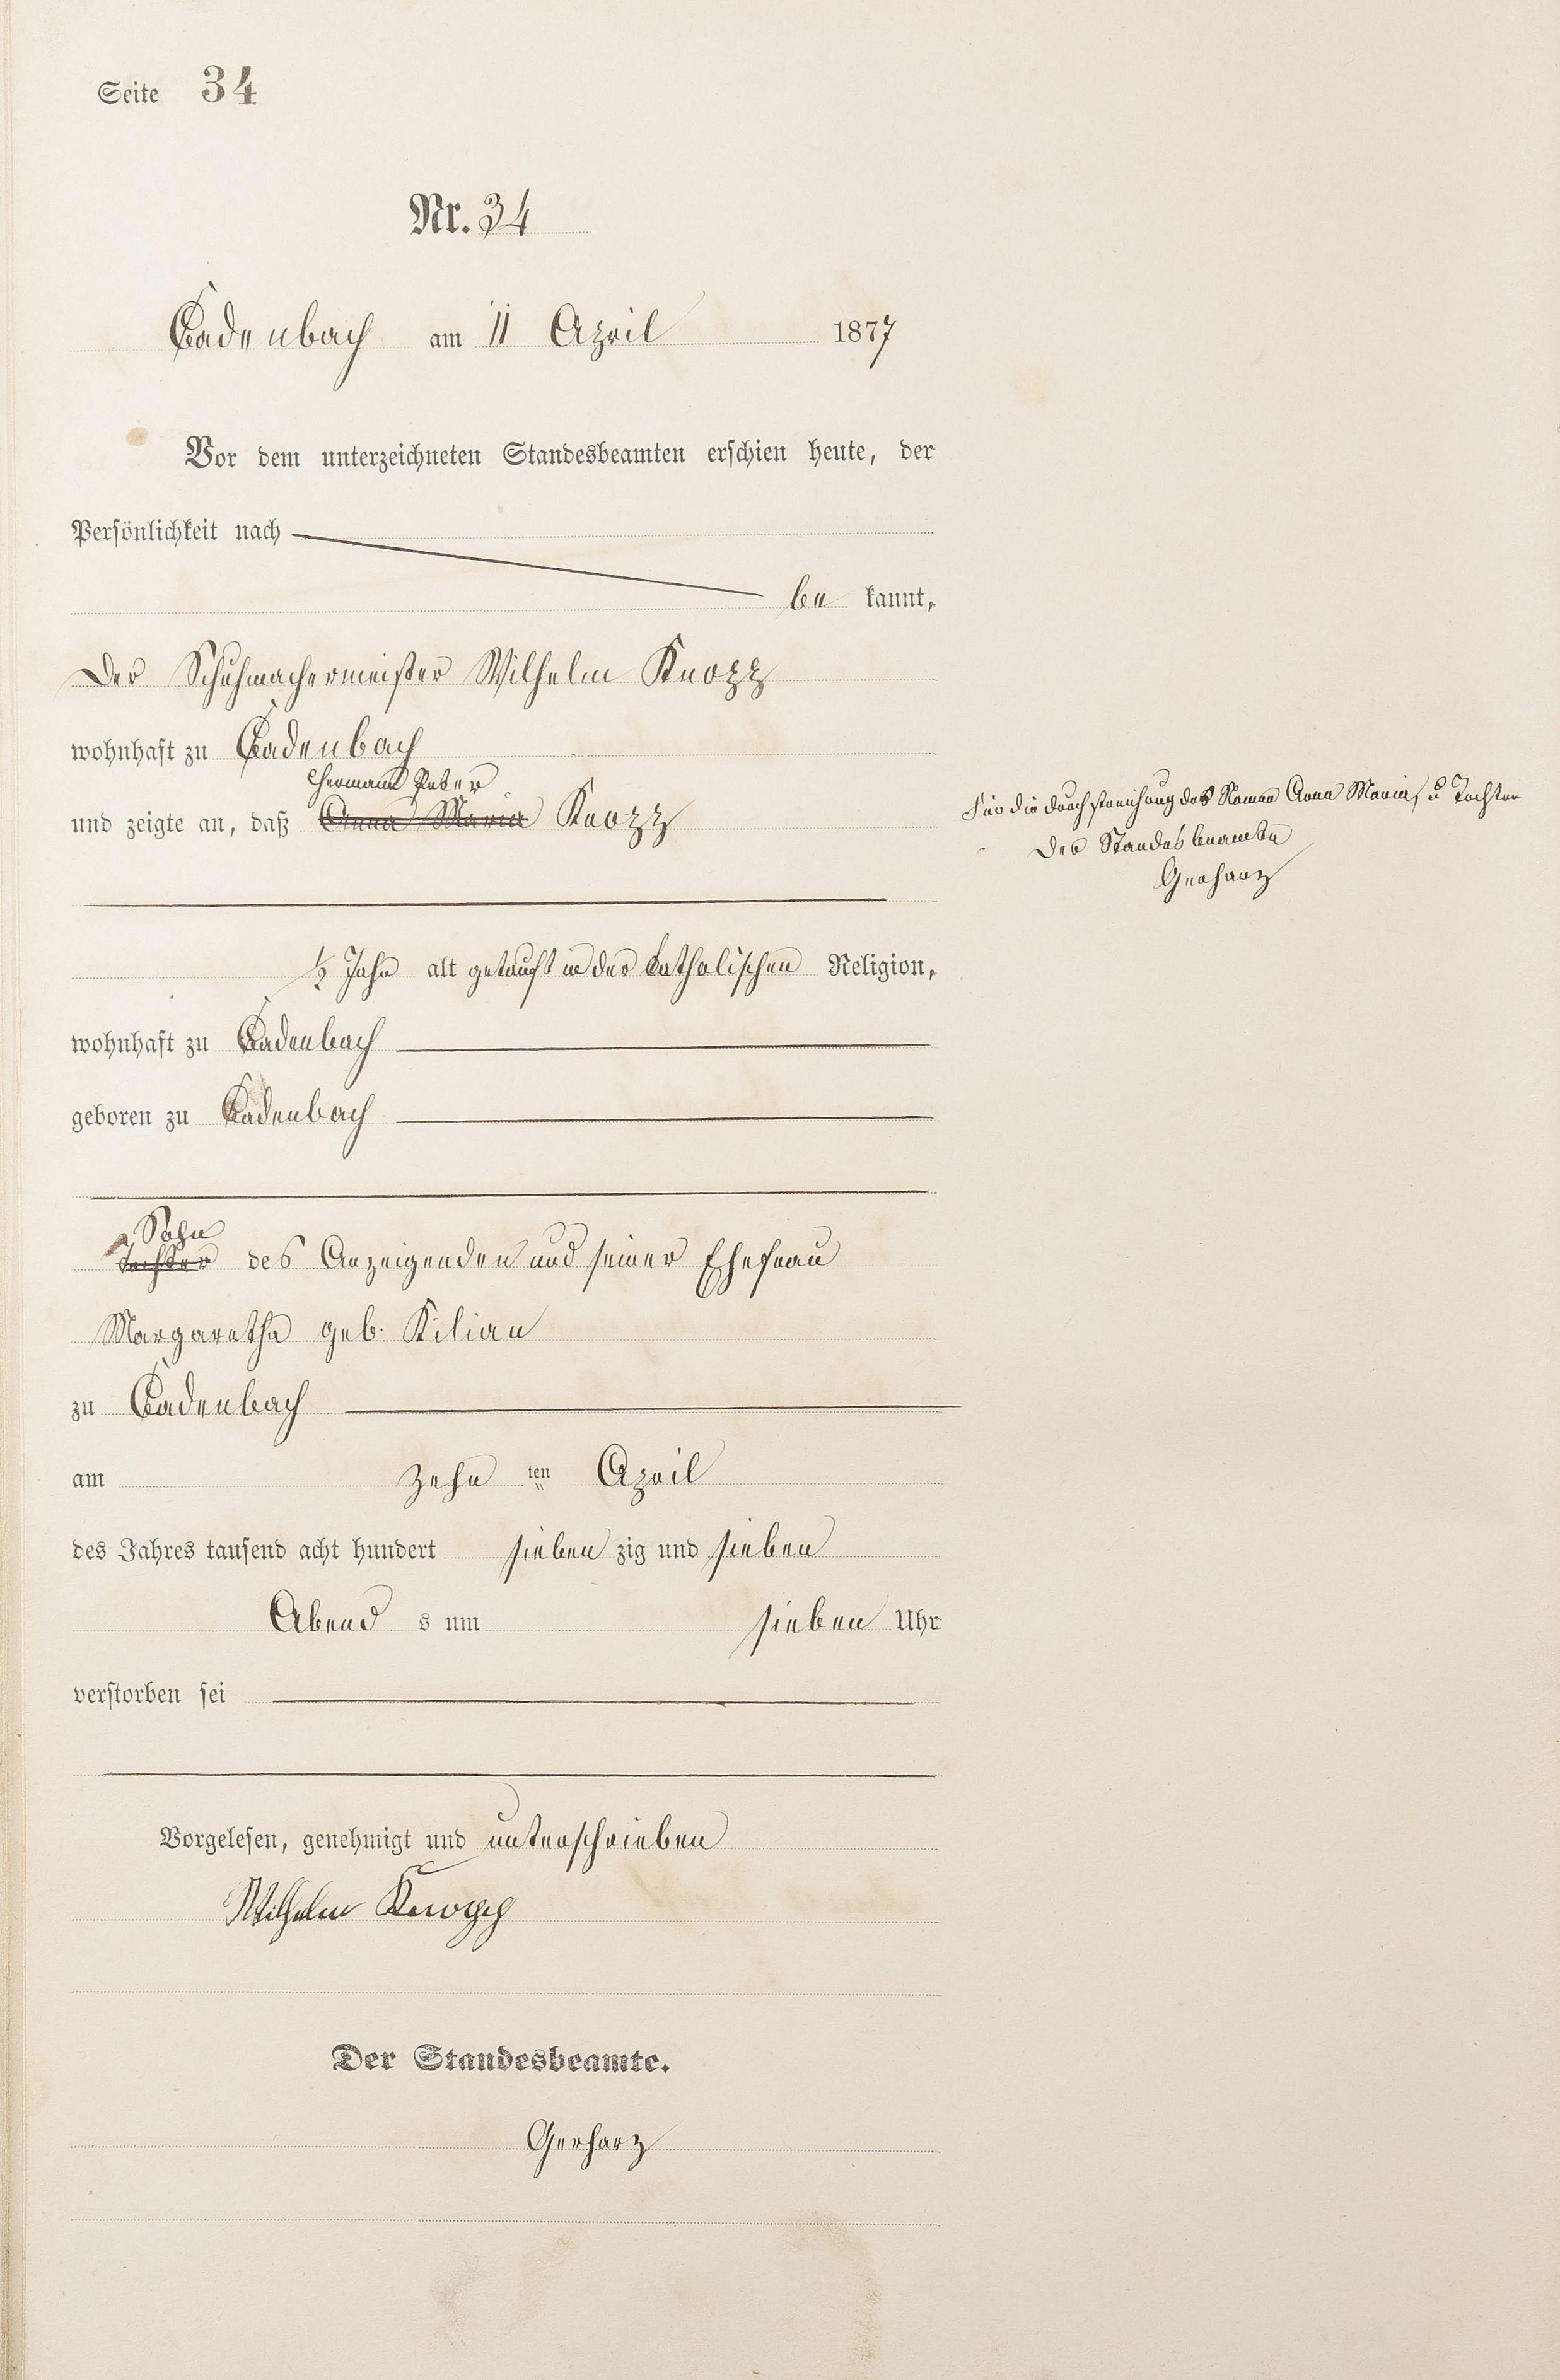 Seite 34
Nr. 34
Cadenbach am 11 April 1877
Vor dem unterzeichneten Standesbeamten erschien heute, der
Persönlichkeit nach
be kannt,
Der Schuhmachermeister Wilhelm Knopp
wohnhaft zu Cadenbach
Hermann Peter
und zeigte an, daß Anna Maria Knopp
Für die Durchstreichung des Namen Anna Maria u Tochter
Der Standesbeamte
Gerharz
1/2 Jahr alt getauft in der katholischen Religion,
wohnhaft zu Cadenbach
geboren zu Cadenbach
Sohn
Tochter des Anzeigenden und seiner Ehefrau
Margaretha geb. Kilian
zu Cadenbach
am zehn ten April
des Jahres tausend acht hundert sieben zig und sieben
Abend s um sieben Uhr
verstorben sei
Vorgelesen, genehmigt und unterschrieben
Wilhelm Knopp
Der Standesbeamte.
Gerharz